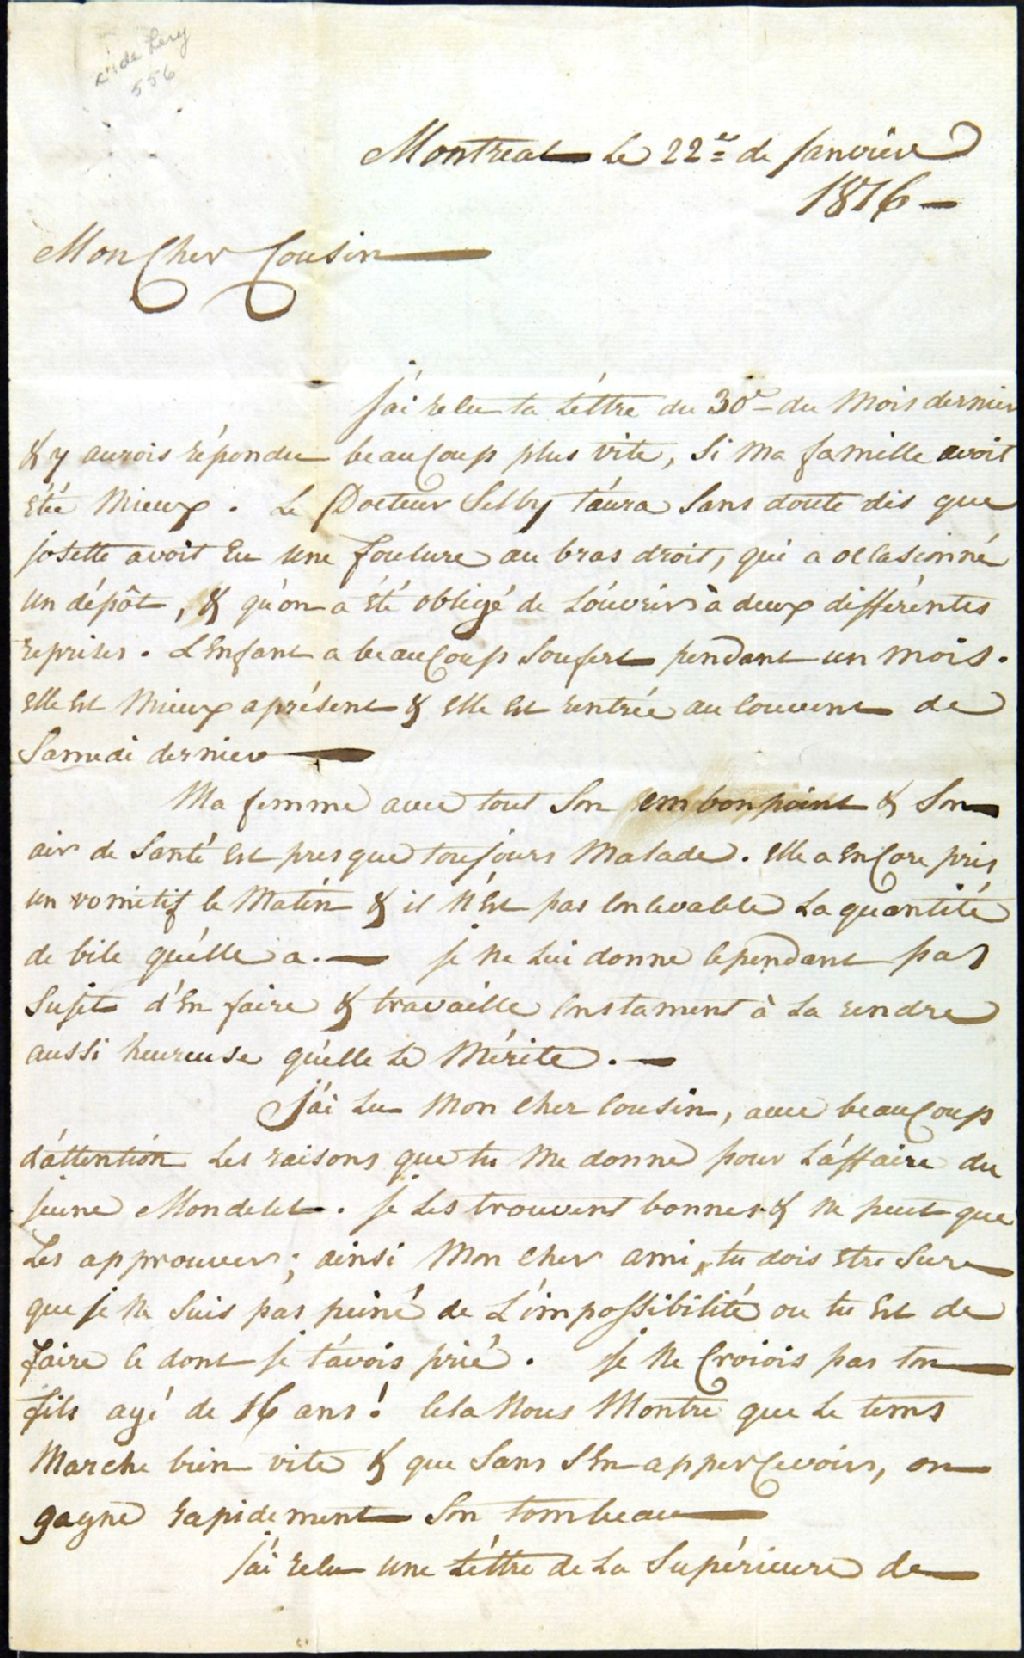 L'r de Lery
556
Montreal le 22e de Janvier
1816
Mon Cher Cousin
J'ai relu ta Léttre du 30e du Mois dernier
& y aurois répondu beaucoup plus vite, Si Ma famille avoit
été Mieux. Le Docteur Selby t'áura Sans doute dis que
josette avoit Eu Une foulure au bras droit, qui a occasionné
un dépôt, & qu'on a été obligé de L'ouvrir à deux différentes
reprises. L'Enfant a beaucoup Soufert pendant un mois.
elle est Mieux aprésent & elle est rentrée au Couvent de
Samedi dernier
Ma femme avec tout Son embonpoint & Son
air de Santé est presque toujours Malade. elle a enCore pris
un vomitif le Matin & il N'est pas Conlevable La quantité
de bile qu'elle a. — je Ne Lui donne Cependant pas
Sujet d'En faire & travaille Constament à La rendre
aussi heureuse qu'elle Le Mérite. —
J'ai Lu Mon Cher Cousin, avec beauCoup
d'attention Les raisons que tu Me donne pour L'affaire du
jeune Mondelet. je Les trouvent bonnes & Ne peut que
Les approuver; ainsi Mon Cher ami, tu dois etre Sure
que je Ne Suis pas peiné de L'impossibilité ou tu est de
faire Ce dont je t'avois prié. je Ne Croiois pas ton
fils agé de 16 ans! Cela Nous Montre que Le tems
Marche bien vite & que Sans S'En apperCevoir, on
gagne rapidement Son tombeau
J'ai relu Une Léttre de La Supérieure de